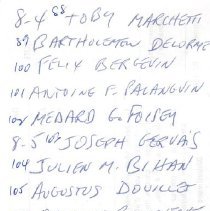 8-4 88 TOBY MARCHETTI
89 BARTHOLEMEW DELORME
100 FELIX BERGEVIN
101 ANTOINE F. PALANGUIN
102 MEDARD G. FOISEY
8-5 103 JOSEPH GERVAIS
104 JULIEN M. BIHAN
105 AUGUSTUS DOUILLET